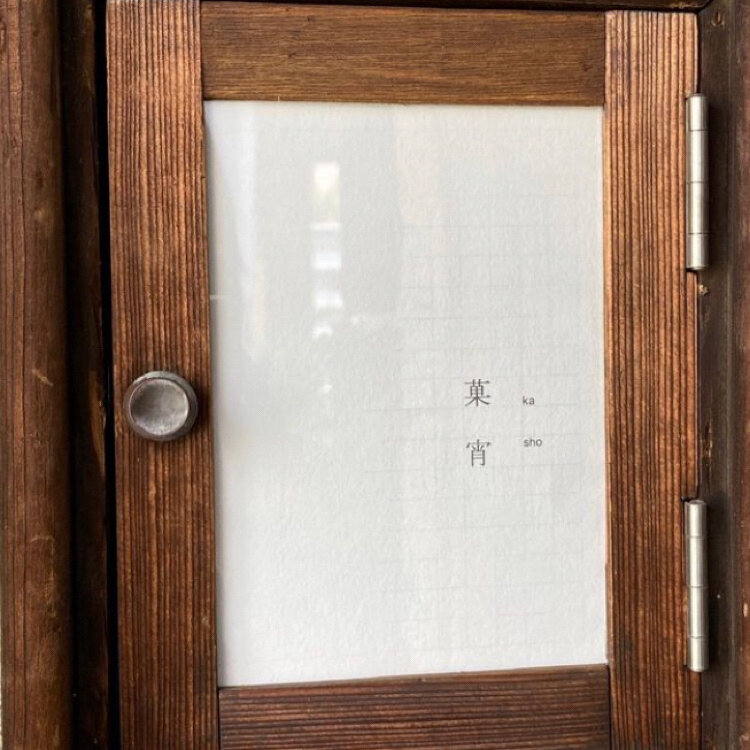 菓宵
ka
sho